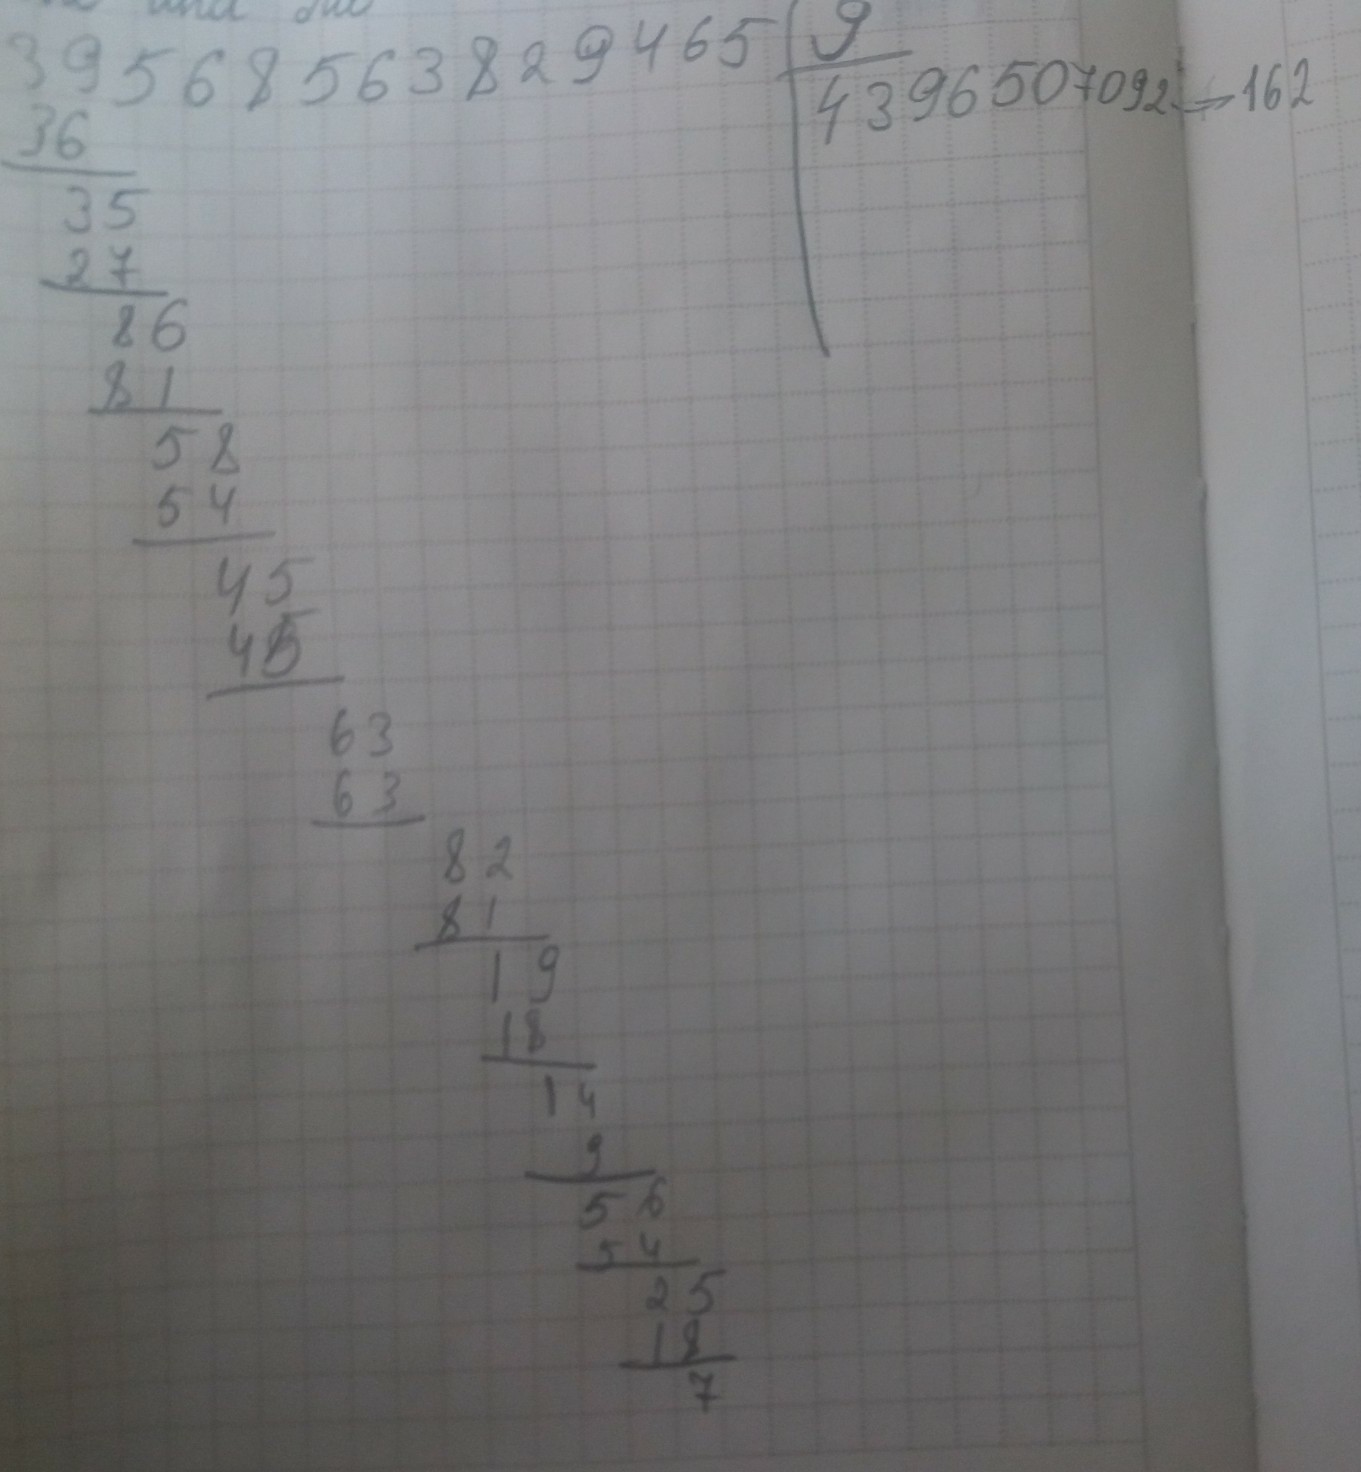 395685638294​65 9
4396507092 → 162
36
35
27
86
81
58
54
45
45
63
63
82
81
19
18
14
9
56
54
25
18
7